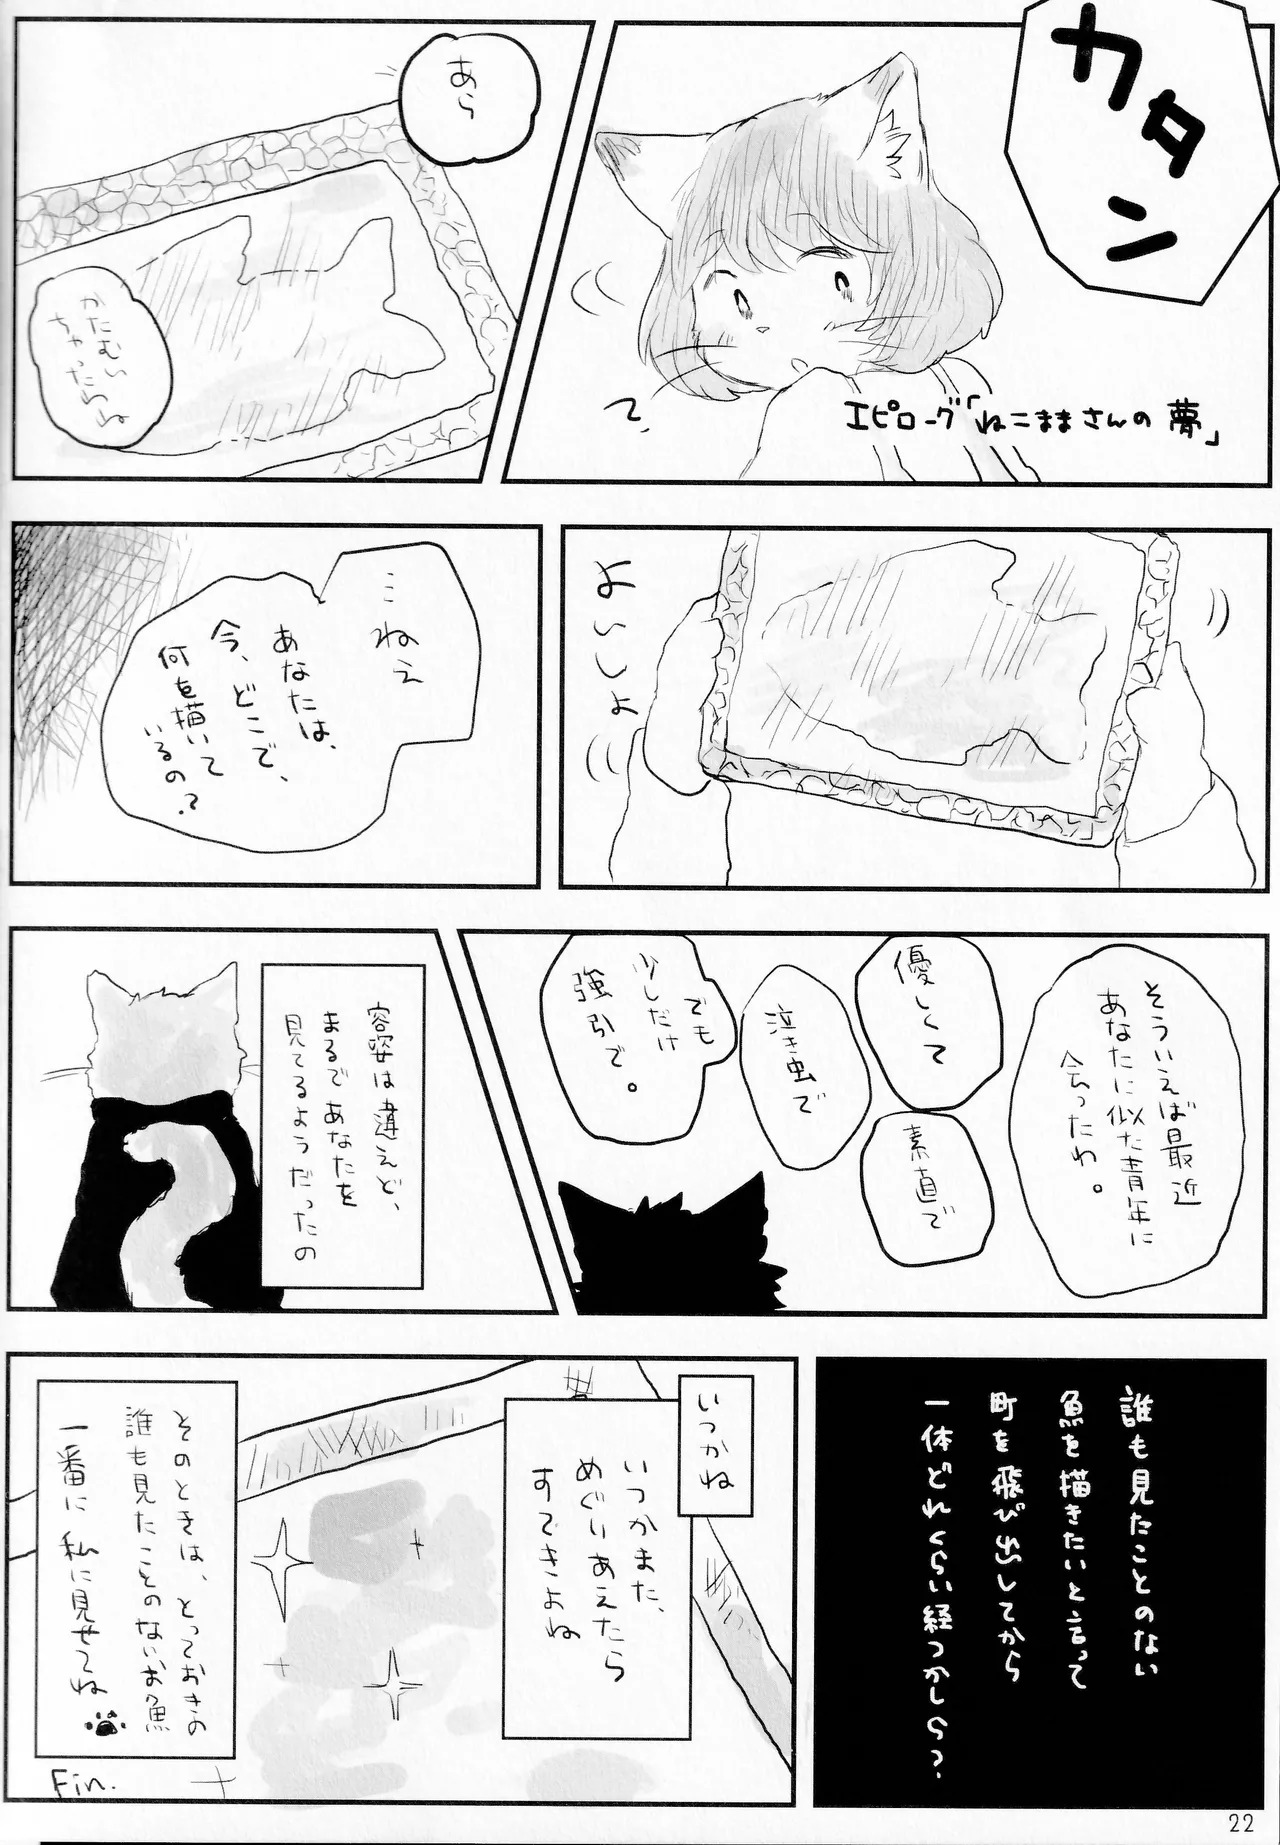 カタン
エピローグ「ねこままさんの夢」
?
あら
かたむい
ちゃったわね
よいしょ
…ねえ
あなたは、
今、どこで、
何を描いて
いるの?
そういえば最近
あなたに似た青年に
会ったわ。
優しくて
素直で
泣き虫で
でも
少しだけ
強引で。
容姿は違えど、
まるであなたを
見てるようだったの
誰も見たことのない
魚を描きたいと言って
町を飛び出してから
一体どれくらい経つかしら?
いつかね
いつかまた、
めぐりあえたら
すてきよね
そのときは、とっておきの
誰も見たことのないお魚
一番に私に見せてね
Fin.
22